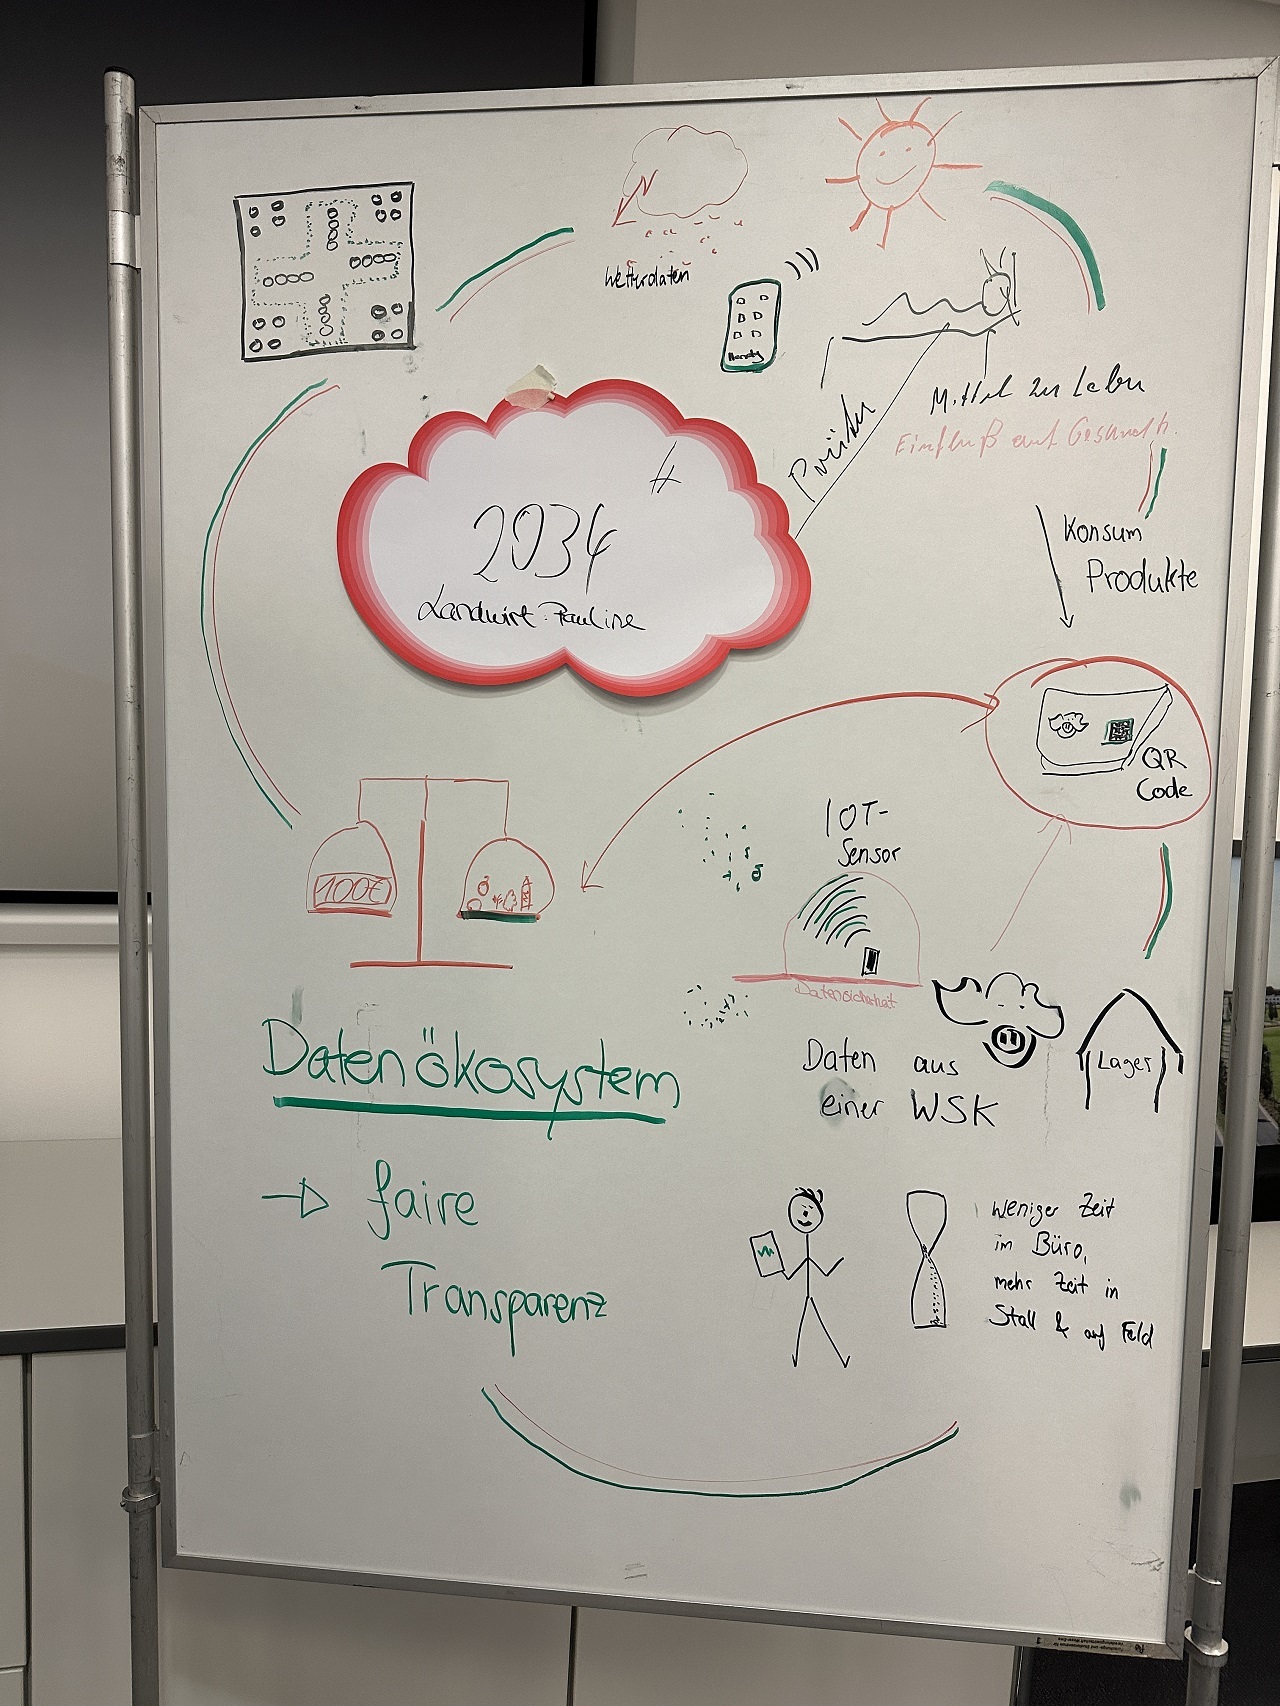 Wetterdaten
Handy
Mittel zu Leben
Einfluß auf Gesundh.
#
2034
Landwirt: Pauline
Konsum
Produkte
QR
Code
IOT-
Sensor
100€
Datensicherheit
Daten aus
einer WSK
Lager
Datenökosystem
→ faire
Transparenz
Weniger Zeit
im Büro,
mehr Zeit in
Stall & auf Feld